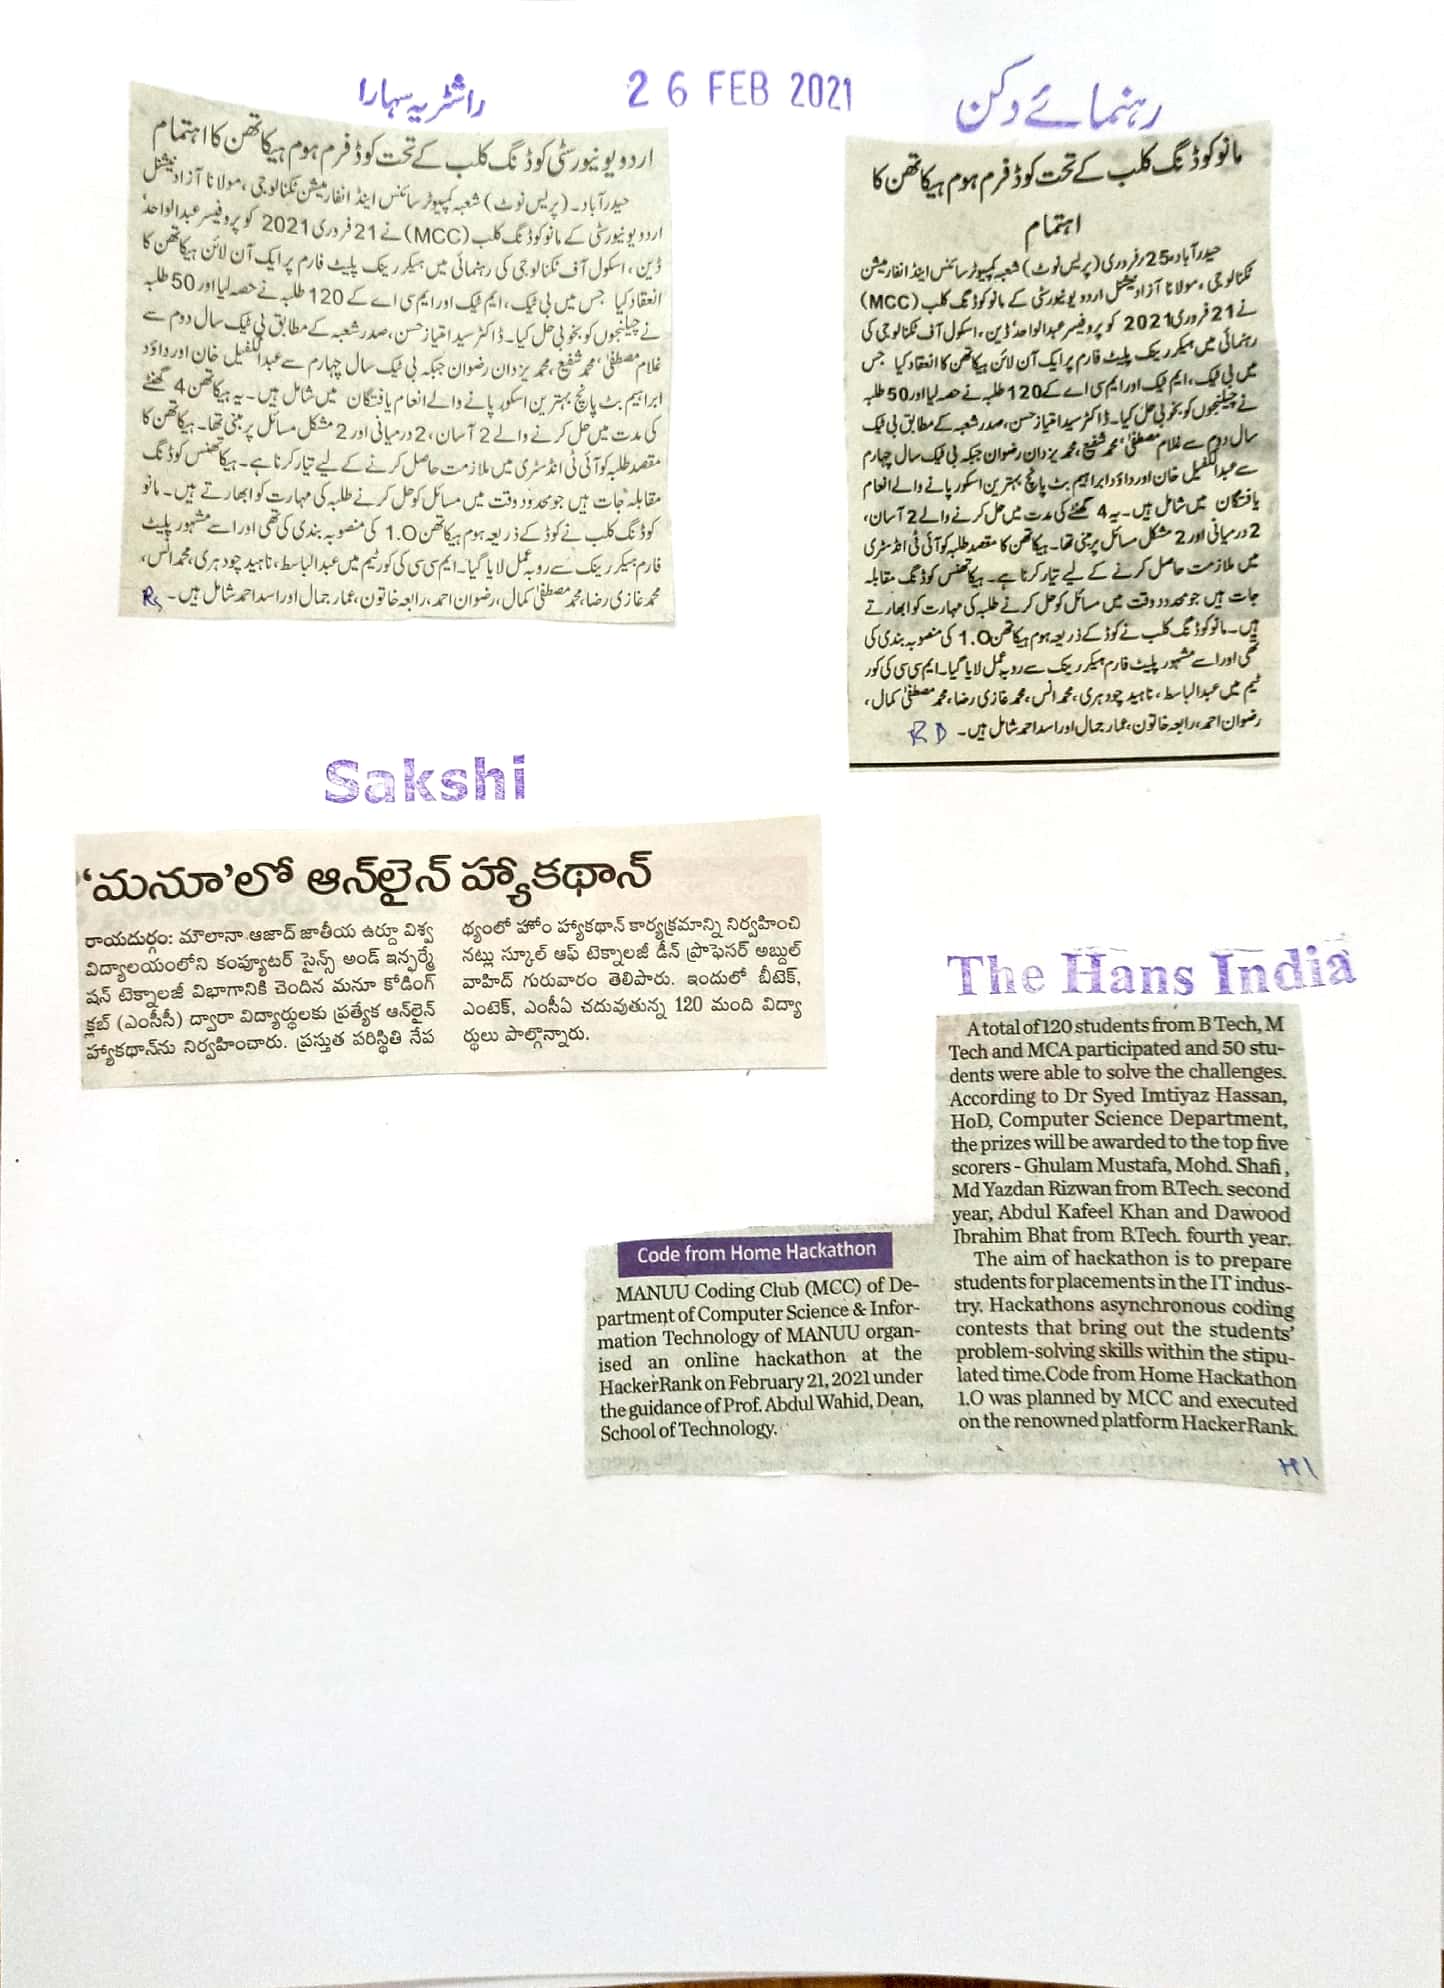 راشٹریہ سہارا
26 FEB 2021
رہنمائے دکن
اردو یونیورسٹی کوڈنگ کلب کے تحت کوڈ فرم ہوم ہیکاتھن کا اہتمام
حیدرآباد۔ (پریس نوٹ) شعبہ کمپیوٹر سائنس اینڈ انفارمیشن ٹکنالوجی، مولانا آزاد نیشنل
اردو یونیورسٹی کے مانو کوڈنگ کلب (MCC) نے 21 فروری 2021 کو پروفیسر عبدالواحد
ڈین، اسکول آف ٹکنالوجی کی رہنمائی میں ہیکر رینک پلیٹ فارم پر ایک آن لائن ہیکاتھن کا
انعقاد کیا جس میں بی ٹیک، ایم ٹیک اور ایم سی اے کے 120 طلبہ نے حصہ لیا اور 50 طلبہ
نے چیلنجوں کو بخوبی حل کیا۔ ڈاکٹر سید امتیاز حسن، صدر شعبہ کے مطابق بی ٹیک سال دوم سے
غلام مصطفیٰ، محمد شفیع، محمد یزدان رضوان جبکہ بی ٹیک سال چہارم سے عبدالکفیل خان اور داؤد
ابراہیم بٹ پانچ بہترین اسکور پانے والے انعام یافتگان میں شامل ہیں۔ یہ ہیکاتھن 4 گھنٹے
کی مدت میں حل کرنے والے 2 آسان، 2 درمیانی اور 2 مشکل مسائل پر مبنی تھا۔ ہیکاتھن کا
مقصد طلبہ کو آئی ٹی انڈسٹری میں ملازمت حاصل کرنے کے لیے تیار کرنا ہے۔ ہیکاتھنس کوڈنگ
مقابلہ جات ہیں جو محدود وقت میں مسائل کو حل کرنے طلبہ کی مہارت کو ابھارتے ہیں۔ مانو
کوڈنگ کلب نے کوڈ کے ذریعہ ہوم ہیکاتھن 1.O کی منصوبہ بندی کی تھی اور اسے مشہور پلیٹ
فارم ہیکر رینک سے روبہ عمل لایا گیا۔ ایم سی سی کی کور ٹیم میں عبدالباسط، ناہید چودہری، محمد انس،
محمد غازی رضا، محمد مصطفیٰ کمال، رضوان احمد، رابعہ خاتون، عمار جمال اور اسد احمد شامل ہیں۔ Rs
مانو کوڈنگ کلب کے تحت کوڈ فرم ہوم ہیکاتھن کا
اہتمام
حیدرآباد۔25 فروری (پریس نوٹ) شعبہ کمپیوٹر سائنس اینڈ انفارمیشن
ٹکنالوجی، مولانا آزاد نیشنل اردو یونیورسٹی کے مانو کوڈنگ کلب (MCC)
نے 21 فروری 2021 کو پروفیسر عبدالواحد ڈین، اسکول آف ٹکنالوجی کی
رہنمائی میں ہیکر رینک پلیٹ فارم پر ایک آن لائن ہیکاتھن کا انعقاد کیا جس
میں بی ٹیک، ایم ٹیک اور ایم سی اے کے 120 طلبہ نے حصہ لیا اور 50 طلبہ
نے چیلنجوں کو بخوبی حل کیا۔ ڈاکٹر سید امتیاز حسن، صدر شعبہ کے مطابق بی ٹیک
سال دوم سے غلام مصطفیٰ، محمد شفیع، محمد یزدان رضوان جبکہ بی ٹیک سال چہارم
سے عبدالکفیل خان اور داؤد ابراہیم بٹ پانچ بہترین اسکور پانے والے انعام
یافتگان میں شامل ہیں۔ یہ 4 گھنٹے کی مدت میں حل کرنے والے 2 آسان،
2 درمیانی اور 2 مشکل مسائل پر مبنی تھا۔ ہیکاتھن کا مقصد طلبہ کو آئی ٹی انڈسٹری
میں ملازمت حاصل کرنے کے لیے تیار کرنا ہے۔ ہیکاتھنس کوڈنگ مقابلہ
جات ہیں جو محدود وقت میں مسائل کو حل کرنے طلبہ کی مہارت کو ابھارتے
ہیں۔ مانو کوڈنگ کلب نے کوڈ کے ذریعہ ہوم ہیکاتھن 1.O کی منصوبہ بندی کی
تھی اور اسے مشہور پلیٹ فارم ہیکر رینک سے روبہ عمل لایا گیا۔ ایم سی سی کی کور
ٹیم میں عبدالباسط، ناہید چودہری، محمد انس، محمد غازی رضا، محمد مصطفیٰ کمال،
رضوان احمد، رابعہ خاتون، عمار جمال اور اسد احمد شامل ہیں۔ RD
Sakshi
'మనూ'లో ఆన్‌లైన్ హ్యాకథాన్
రాయదుర్గం: మౌలానా ఆజాద్ జాతీయ ఉర్దూ విశ్వ
విద్యాలయంలోని కంప్యూటర్ సైన్స్ అండ్ ఇన్ఫర్మే
షన్ టెక్నాలజీ విభాగానికి చెందిన మనూ కోడింగ్
క్లబ్ (ఎంసీసీ) ద్వారా విద్యార్థులకు ప్రత్యేక ఆన్‌లైన్
హ్యాకథాన్‌ను నిర్వహించారు. ప్రస్తుత పరిస్థితి నేప
థ్యంలో హోం హ్యాకథాన్ కార్యక్రమాన్ని నిర్వహించి
నట్లు స్కూల్ ఆఫ్ టెక్నాలజీ డీన్ ప్రొఫెసర్ అబ్దుల్
వాహిద్ గురువారం తెలిపారు. ఇందులో బీటెక్,
ఎంటెక్, ఎంసీఏ చదువుతున్న 120 మంది విద్యా
ర్థులు పాల్గొన్నారు.
The Hans India
Code from Home Hackathon
MANUU Coding Club (MCC) of De-
partment of Computer Science & Infor-
mation Technology of MANUU organ-
ised an online hackathon at the
HackerRank on February 21, 2021 under
the guidance of Prof. Abdul Wahid, Dean,
School of Technology.
A total of 120 students from B Tech, M
Tech and MCA participated and 50 stu-
dents were able to solve the challenges.
According to Dr Syed Imtiyaz Hassan,
HoD, Computer Science Department,
the prizes will be awarded to the top five
scorers - Ghulam Mustafa, Mohd. Shafi,
Md Yazdan Rizwan from B.Tech. second
year, Abdul Kafeel Khan and Dawood
Ibrahim Bhat from B.Tech. fourth year.
The aim of hackathon is to prepare
students for placements in the IT indus-
try. Hackathons asynchronous coding
contests that bring out the students'
problem-solving skills within the stipu-
lated time.Code from Home Hackathon
1.O was planned by MCC and executed
on the renowned platform HackerRank.
HI